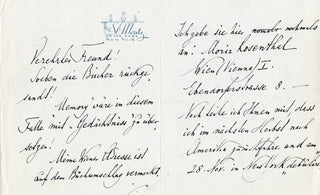 St. Moritz
New York
Verehrter Freund!
soeben die Bücher rückge-
sandt!
"Memory" wäre in diesem
Falle mit "Gedächtniss" zu über-
setzen.
Meine Wiener Adresse ist
auf dem Büchumschlag vermerkt.
Ich gebe sie hier nochmals
an: Moriz Rosenthal
Wien (Vienna) I.
Ebendorferstrasse 8. —
Noch teile ich Ihnen mit, dass
ich im nächsten Herbst nach
Amerika zurückfahre und am
28. Nov. in New York